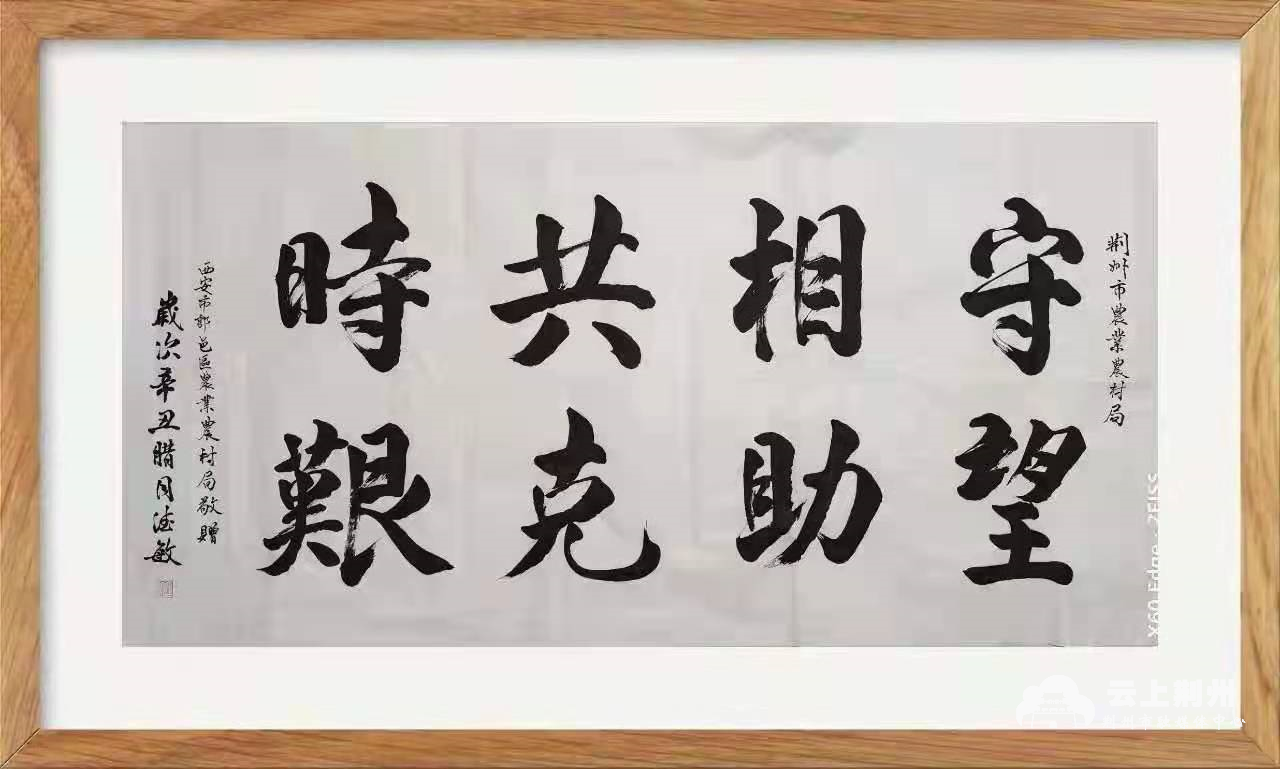 荆州市農業農村局
守望
相助
共克
時艱
西安市鄠邑區農業農村局敬贈
歲次辛丑腊月德敏
云上荆州